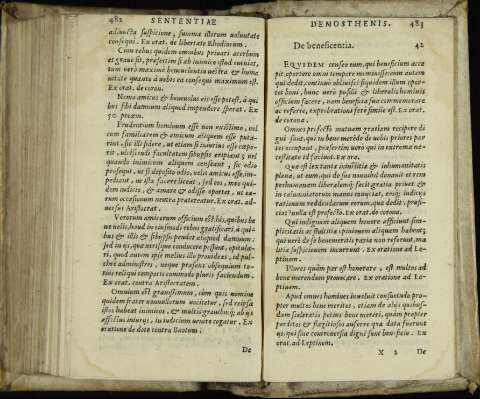 482 SENTENTIAE
adiuncta suspitione, summa illorum voluntate
consequi. Ex orat. de libertate Rhodiorum.
Cùm rebus quidem omnibus priuari acerbum
et graue sit, præsertim si ab inimico istud contingat,
tum verò maximè beneuolentia vestra & huma
nitate quanto à vobis ea consequi maximum est.
Ex orat. de coron.
Nemo amicus & beneuolus eis esse potest, à qui
bus sibi damnum aliquod impendere sperat. Ex
50 procem.
Prudentium hominum esse non existimo, vel
cum familiarem & amicum aliquem esse puta-
rint, sic illi fidere, ut etiam si iniurius esse cœpe-
rit, ulciscendi facultatem sibijpsis eripiant; vel
quando inimicum aliquem censeant, sic odio
prosequi, ut si deposito odio, velit amicus esse, im-
pediant, ne ista facere liceat, sed eos, meo qui-
dem iudicio, & amare & odisse oportet, ut ea-
rum occasionum neutra prætereatur. Ex orat. ad-
uersus Aristocrat.
Verorum amicorum officium est his, quibus be
ne uelis, haud in eiusmodi rebus gratificari, à qui-
bus & illis & sibijpsis pendet aliquod damnum:
sed in ijs, quæ utrisque conducere possint, opitula-
ri, quod autem ipse melius illi prouideas, id pul-
chrè administres, neque præsens obsequium to-
tius reliqui temporis commodo pluris faciendum.
Ex orat. contra Aristocratem.
Omnium est grauissimum, cùm quis nomine
quidem frater nonnullorum vocitetur, sed re ipsa
istos habeat inimicos, & multis grauibusq; ab ijs
affectus iniurijs, in iudicium venire cogatur. Ex
oratione de dote contra Bœotum.
De
DEMOSTHENIS. 483
De beneficentia. 42
EQVIDEM censeo eum, qui beneficium accæ
pit, oportere omni tempore meminisse: eum autem
qui dedit, continuò obliuisci: siquidem illum opor-
tet boni, hunc verò pusilli & liberalis hominis
officium facere, nam beneficia sua commemorare
ac referre, exprobrationi ferè simile est. Ex orat.
de corona.
Omnes profectò mutuam gratiam recipere di
gni sunt, qui tu bene mereàs de uobis priores par
tes occupant, præsertim uerò qui in extrema ne-
cessitate id faciunt. Ex ora.
Quæ est ex tanta insolentia & inhumanitatis
plena, ut eum, qui de suo nonnihil donauit et rem
perhumanam liberalemq; fecit gratia priuet &
in calumniatorum manus coniiciat, eosq; iudices
rationum reddendarum eorum, quæ dedit, profi-
ciat? nulla est profectò. Ex orat. de corona.
Qui indignum aliquem honore afficiunt, sim-
plicitatis ac stultitiæ opinionem aliquam habent;
qui uerò de se benemeritis paria non referunt, ma
litiæ suspicionem incurrunt. Ex oratione ad Le-
ptinem.
Plures quàm par est honorare, est multos ad
bene merendum prouocare. Ex oratione ad Le-
ptinem.
Apud omnes homines inoleuit consuetudo pro-
pter multos bene meritos, etiam de alijs quibus-
dam sceleratis potius bene mereri, quàm propter
perditos & flagitiosos auferre quæ data fuerunt
ijs, qui sine controuersia digni sunt beneficio. Ex
orat. ad Leptinem.
X 2 De